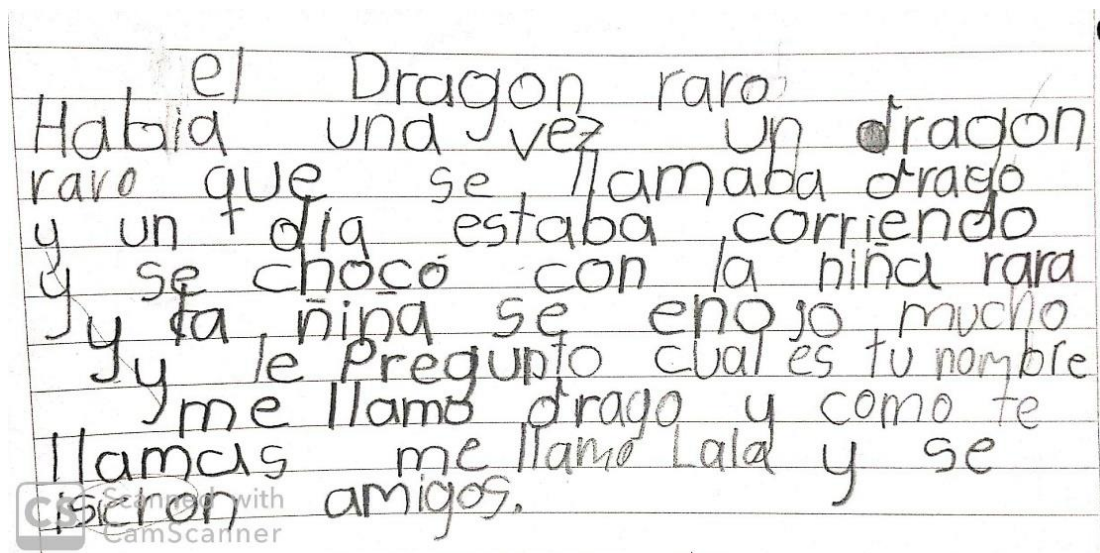 el Dragon raro
Habia una vez un dragon
raro que se llamaba drago
y un dia estaba corriendo
y se choco con la niña rara
y la niña se enojo mucho
y le Pregunto cual es tu nombre
me llamo drago y como te
llamas me llamo Lala y se
isieron amigos.
CS Scanned with
CamScanner